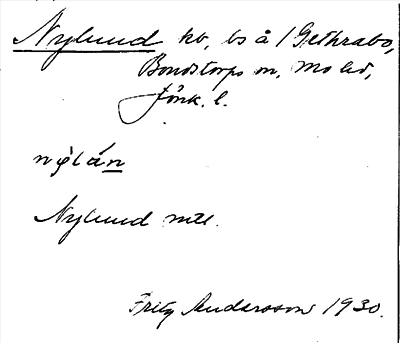 Nylund kb, bs å 1 Gethrabo,
Bondstorps sn, Mo hd,
Jönk. l.
nỳlán
Nylund mtl.
Fritz Andersson 1930.